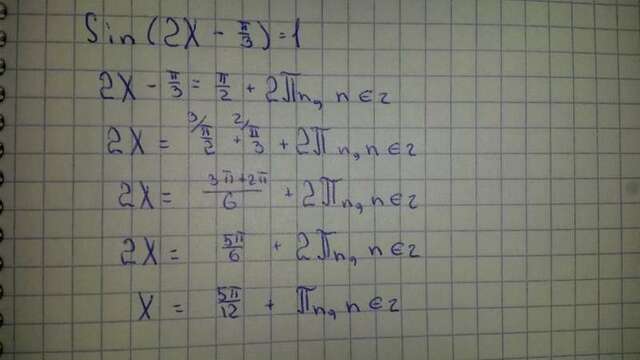 Sin(2X - π/3) = 1
2X - π/3 = π/2 + 2πn, n ∈ z
2X = 3/ π/2 + 2/ π/3 + 2πn, n ∈ z
2X = (3π+2π)/6 + 2πn, n ∈ z
2X = 5π/6 + 2πn, n ∈ z
X = 5π/12 + πn, n ∈ z